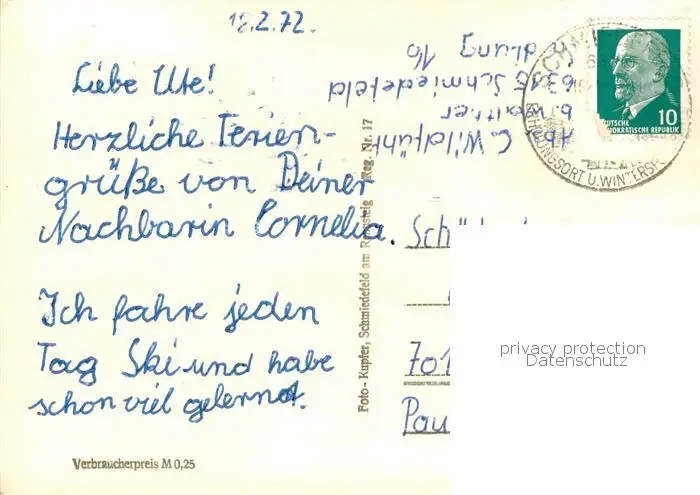 18.2.72.
Liebe Ute!
Herzliche Ferien-
grüße von Deiner
Nachbarin Cornelia.
Ich fahre jeden
Tag Ski und habe
schon viel gelernt.
Verbraucherpreis M 0,25
Foto-Kupfer, Schmiedefeld am Rennsteig Reg. Nr. 17
Abs. C. Wildführ
b. Walther
6315 Schmiedefeld
16
10
DEUTSCHE
DEMOKRATISCHE REPUBLIK
ERHOLUNGSORT U. WINTERSP
Sch
701
Pau
privacy protection
Datenschutz